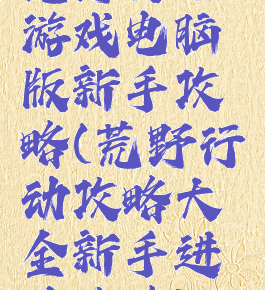 游戏电脑
版新手攻
略(荒野行
动攻略大
全新手进